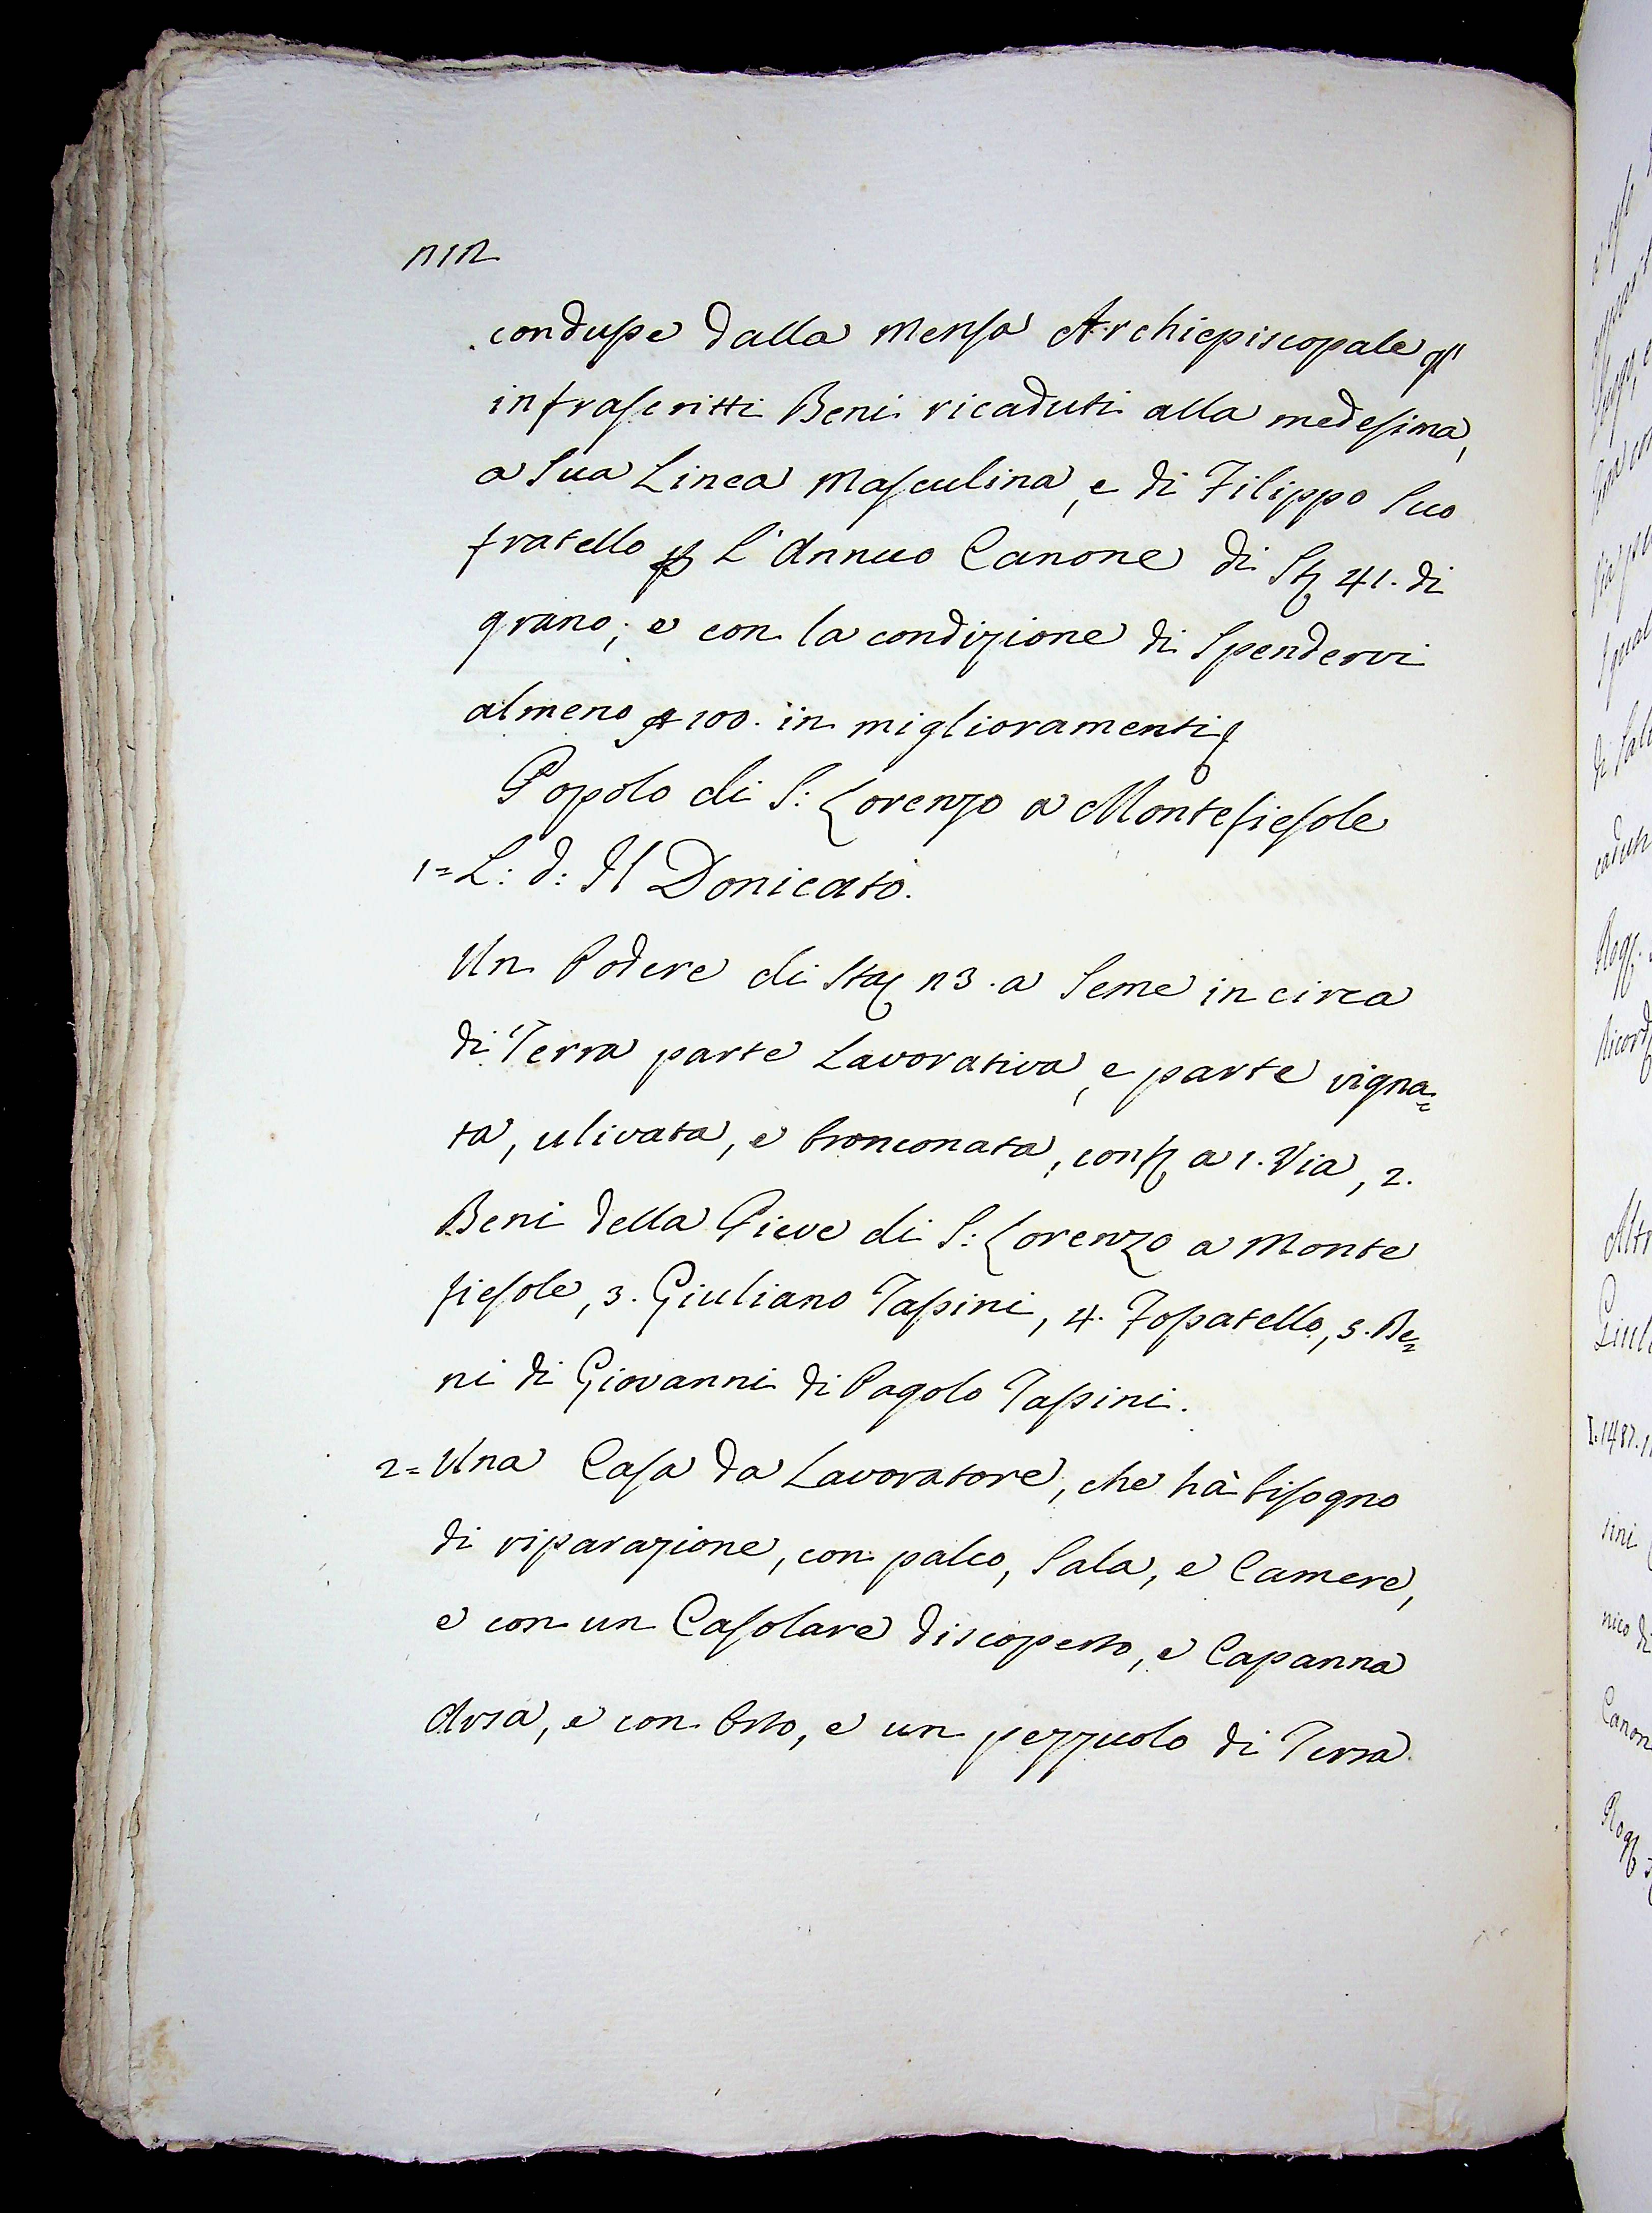 212
condusse dalla Mensa Archiepiscopale gl'
infrascritti Beni ricaduti alla medesima,
a Sua Linea Masculina, e di Filippo Suo
fratello p L'Annuo Canone di St 41. di
grano; e con la condizione di Spendervi
almeno 100. in miglioramenti
Popolo di S: Lorenzo a Montefiesole
1= L: d: Il Donicato.
Un Podere di Sta 23. a Seme in circa
di Terra parte Lavorativa, e parte vigna=
ta, ulivata, e bronconata, conf a 1. Via, 2.
Beni della Pieve di S: Lorenzo a Monte
fiesole, 3. Giuliano Tassini, 4. Fossatello, 5. Be=
ni di Giovanni di Pagolo Tassini.
2= Una Casa da Lavoratore, che hà bisogno
di riparazione, con palco, Sala, e Camere,
e con un Casolare discoperto, e Capanna
Arsa, e con Orto, e un pezzuolo di Terra